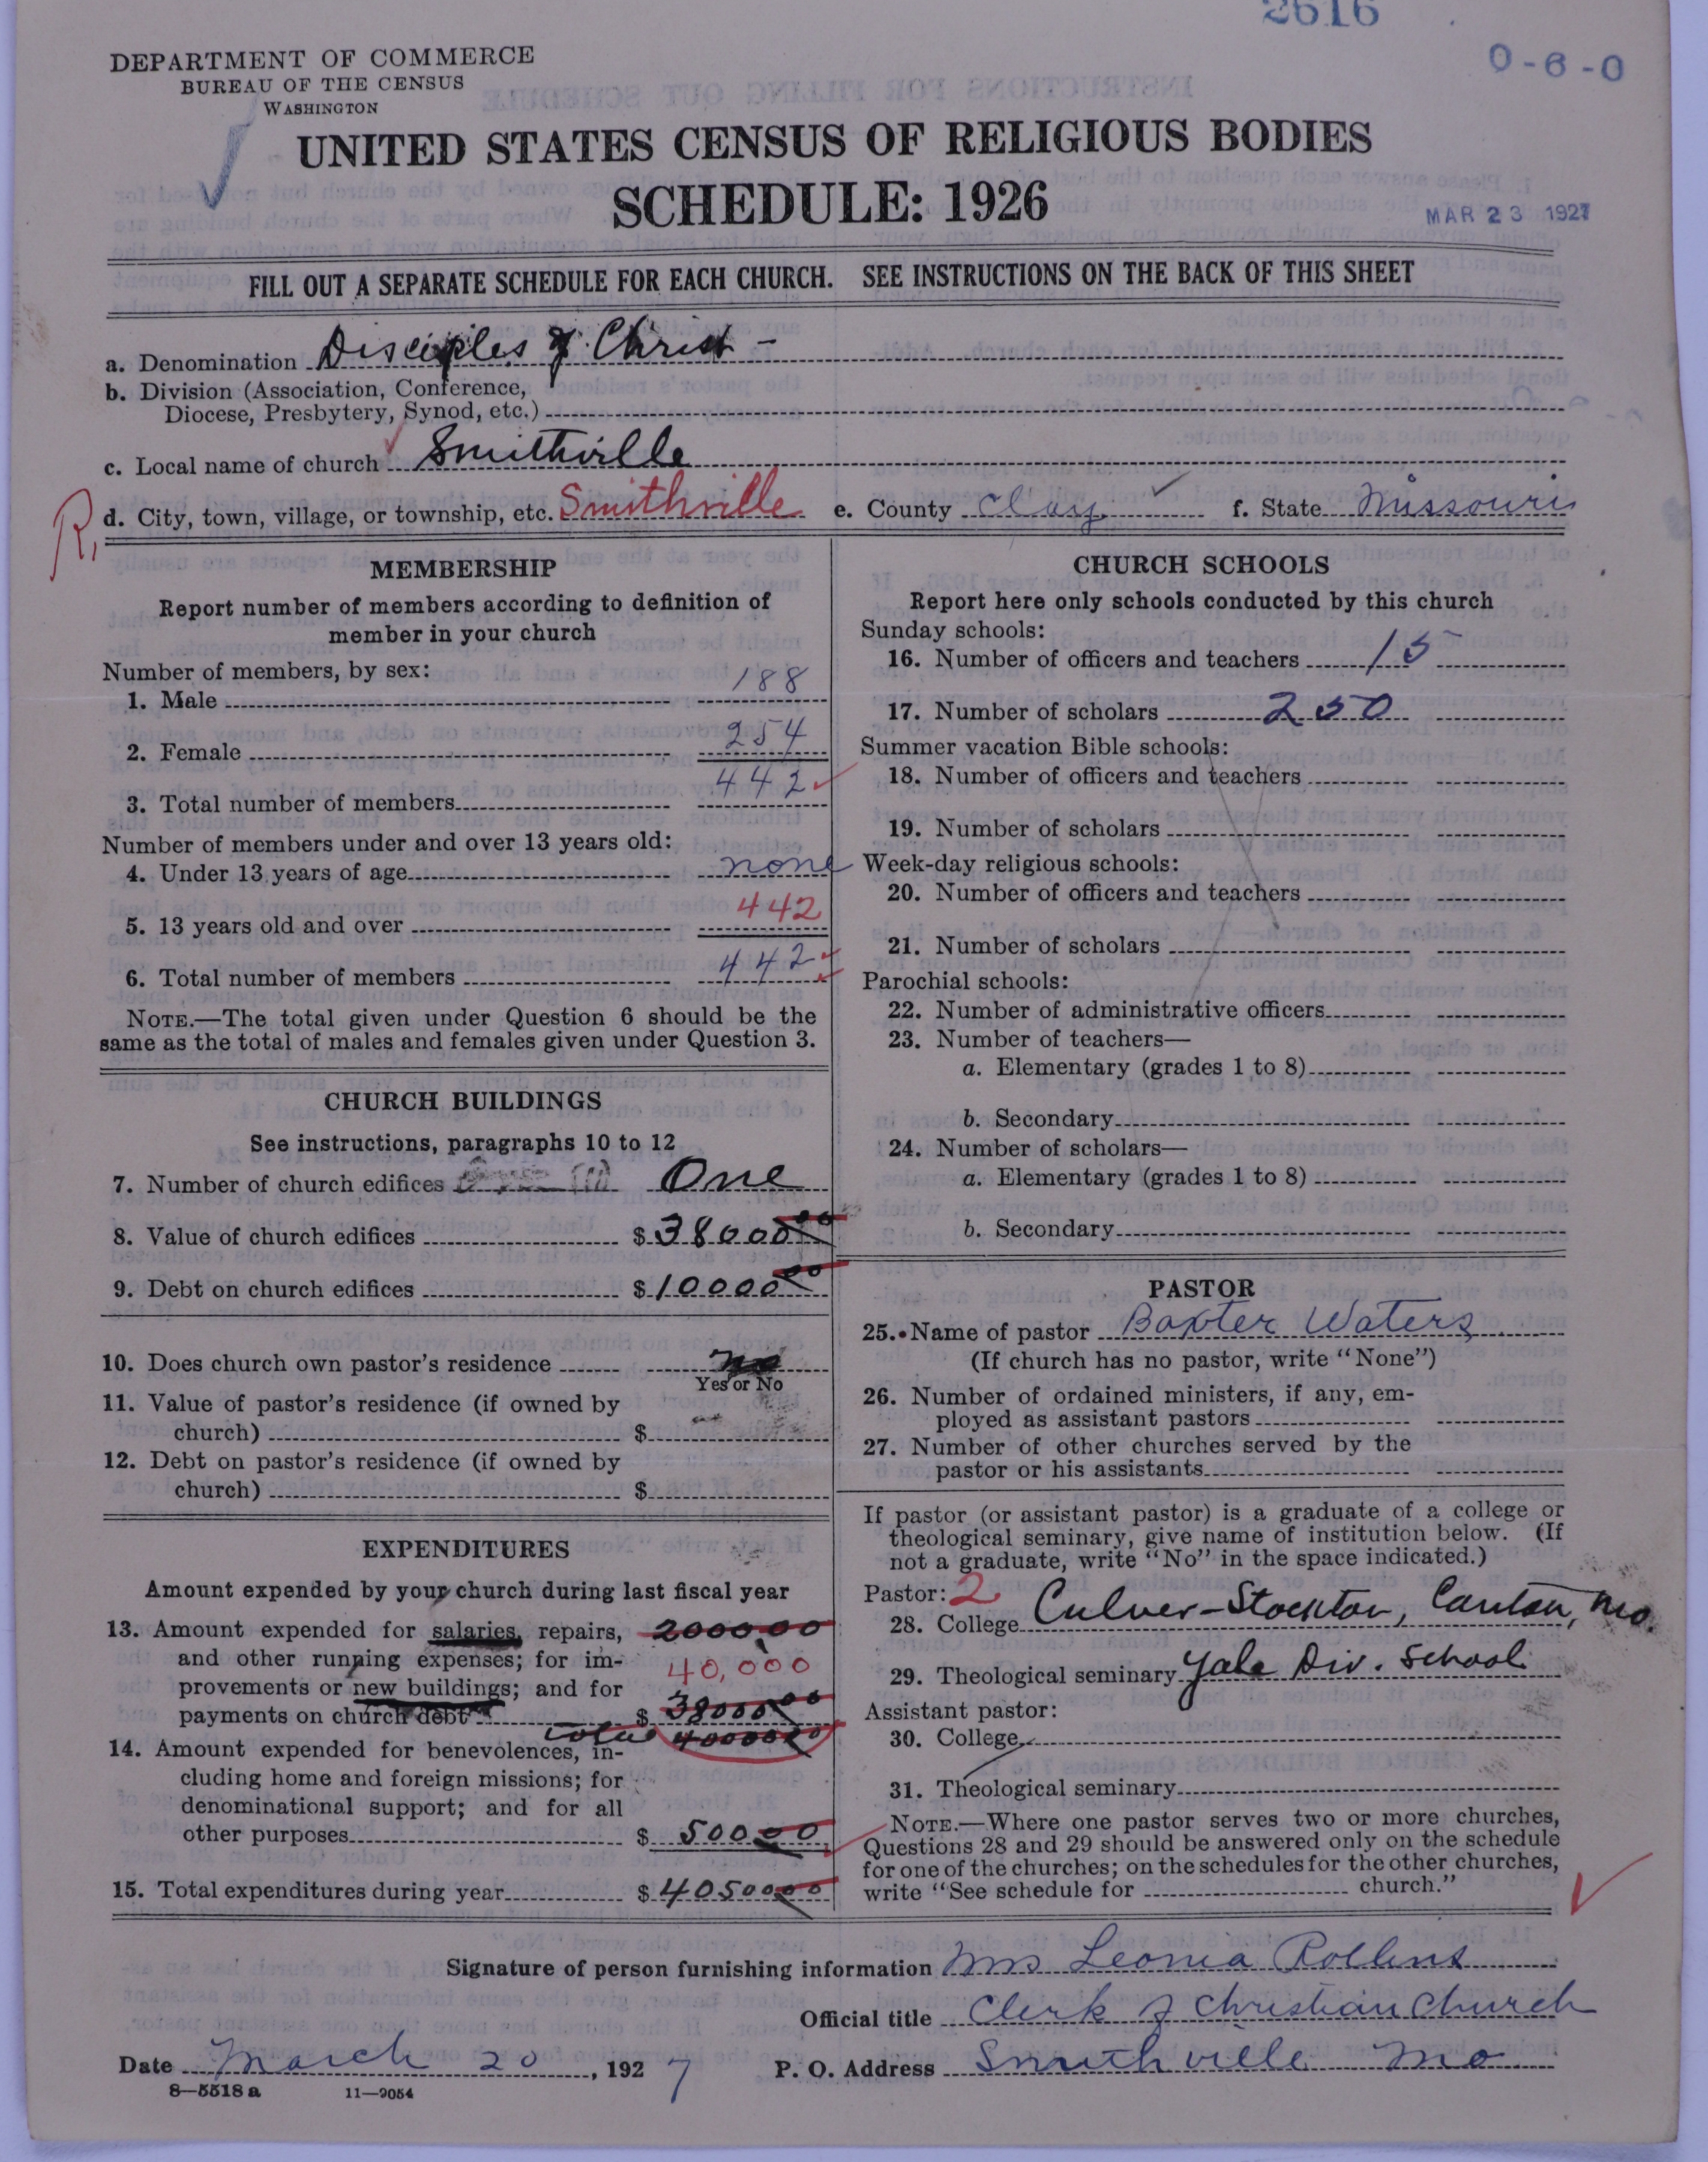 2616
0-6-0
DEPARTMENT OF COMMERCE
BUREAU OF THE CENSUS
WASHINGTON
UNITED STATES CENSUS OF RELIGIOUS BODIES
SCHEDULE: 1926
MAR 23 1927
FILL OUT A SEPARATE SCHEDULE FOR EACH CHURCH. SEE INSTRUCTIONS ON THE BACK OF THIS SHEET
a. Denomination Disciples of Christ -
b. Division (Association, Conference,
Diocese, Presbytery, Synod, etc.)
c. Local name of church Smithville
R, d. City, town, village, or township, etc. Smithville e. County Clay f. State Missouri
MEMBERSHIP
Report number of members according to definition of
member in your church
Number of members, by sex:
1. Male 188
2. Female 254
3. Total number of members 442
Number of members under and over 13 years old:
4. Under 13 years of age none
5. 13 years old and over 442
6. Total number of members 442
NOTE.—The total given under Question 6 should be the
same as the total of males and females given under Question 3.
CHURCH BUILDINGS
See instructions, paragraphs 10 to 12
7. Number of church edifices One
8. Value of church edifices $ 38000 00
9. Debt on church edifices $ 10000 00
10. Does church own pastor's residence no
Yes or No
11. Value of pastor's residence (if owned by
church) $
12. Debt on pastor's residence (if owned by
church) $
EXPENDITURES
Amount expended by your church during last fiscal year
13. Amount expended for salaries, repairs, 2000 00
and other running expenses; for im- 40,000
provements or new buildings; and for
payments on church debt $ 38000 00
total 40000 00
14. Amount expended for benevolences, in-
cluding home and foreign missions; for
denominational support; and for all
other purposes $ 500 00
15. Total expenditures during year $ 40500 00
CHURCH SCHOOLS
Report here only schools conducted by this church
Sunday schools:
16. Number of officers and teachers 15
17. Number of scholars 250
Summer vacation Bible schools:
18. Number of officers and teachers
19. Number of scholars
Week-day religious schools:
20. Number of officers and teachers
21. Number of scholars
Parochial schools:
22. Number of administrative officers
23. Number of teachers—
a. Elementary (grades 1 to 8)
b. Secondary
24. Number of scholars—
a. Elementary (grades 1 to 8)
b. Secondary
PASTOR
25. Name of pastor Baxter Waters
(If church has no pastor, write "None")
26. Number of ordained ministers, if any, em-
ployed as assistant pastors
27. Number of other churches served by the
pastor or his assistants
If pastor (or assistant pastor) is a graduate of a college or
theological seminary, give name of institution below. (If
not a graduate, write "No" in the space indicated.)
Pastor: 2
28. College Culver-Stockton, Canton, Mo.
29. Theological seminary Yale Div. School
Assistant pastor:
30. College
31. Theological seminary
NOTE.—Where one pastor serves two or more churches,
Questions 28 and 29 should be answered only on the schedule
for one of the churches; on the schedules for the other churches,
write "See schedule for church."
Signature of person furnishing information Mrs Leonia Rollins
Official title Clerk of Christian Church
Date March 20, 1927 P. O. Address Smithville Mo
8—5518 a 11—9054